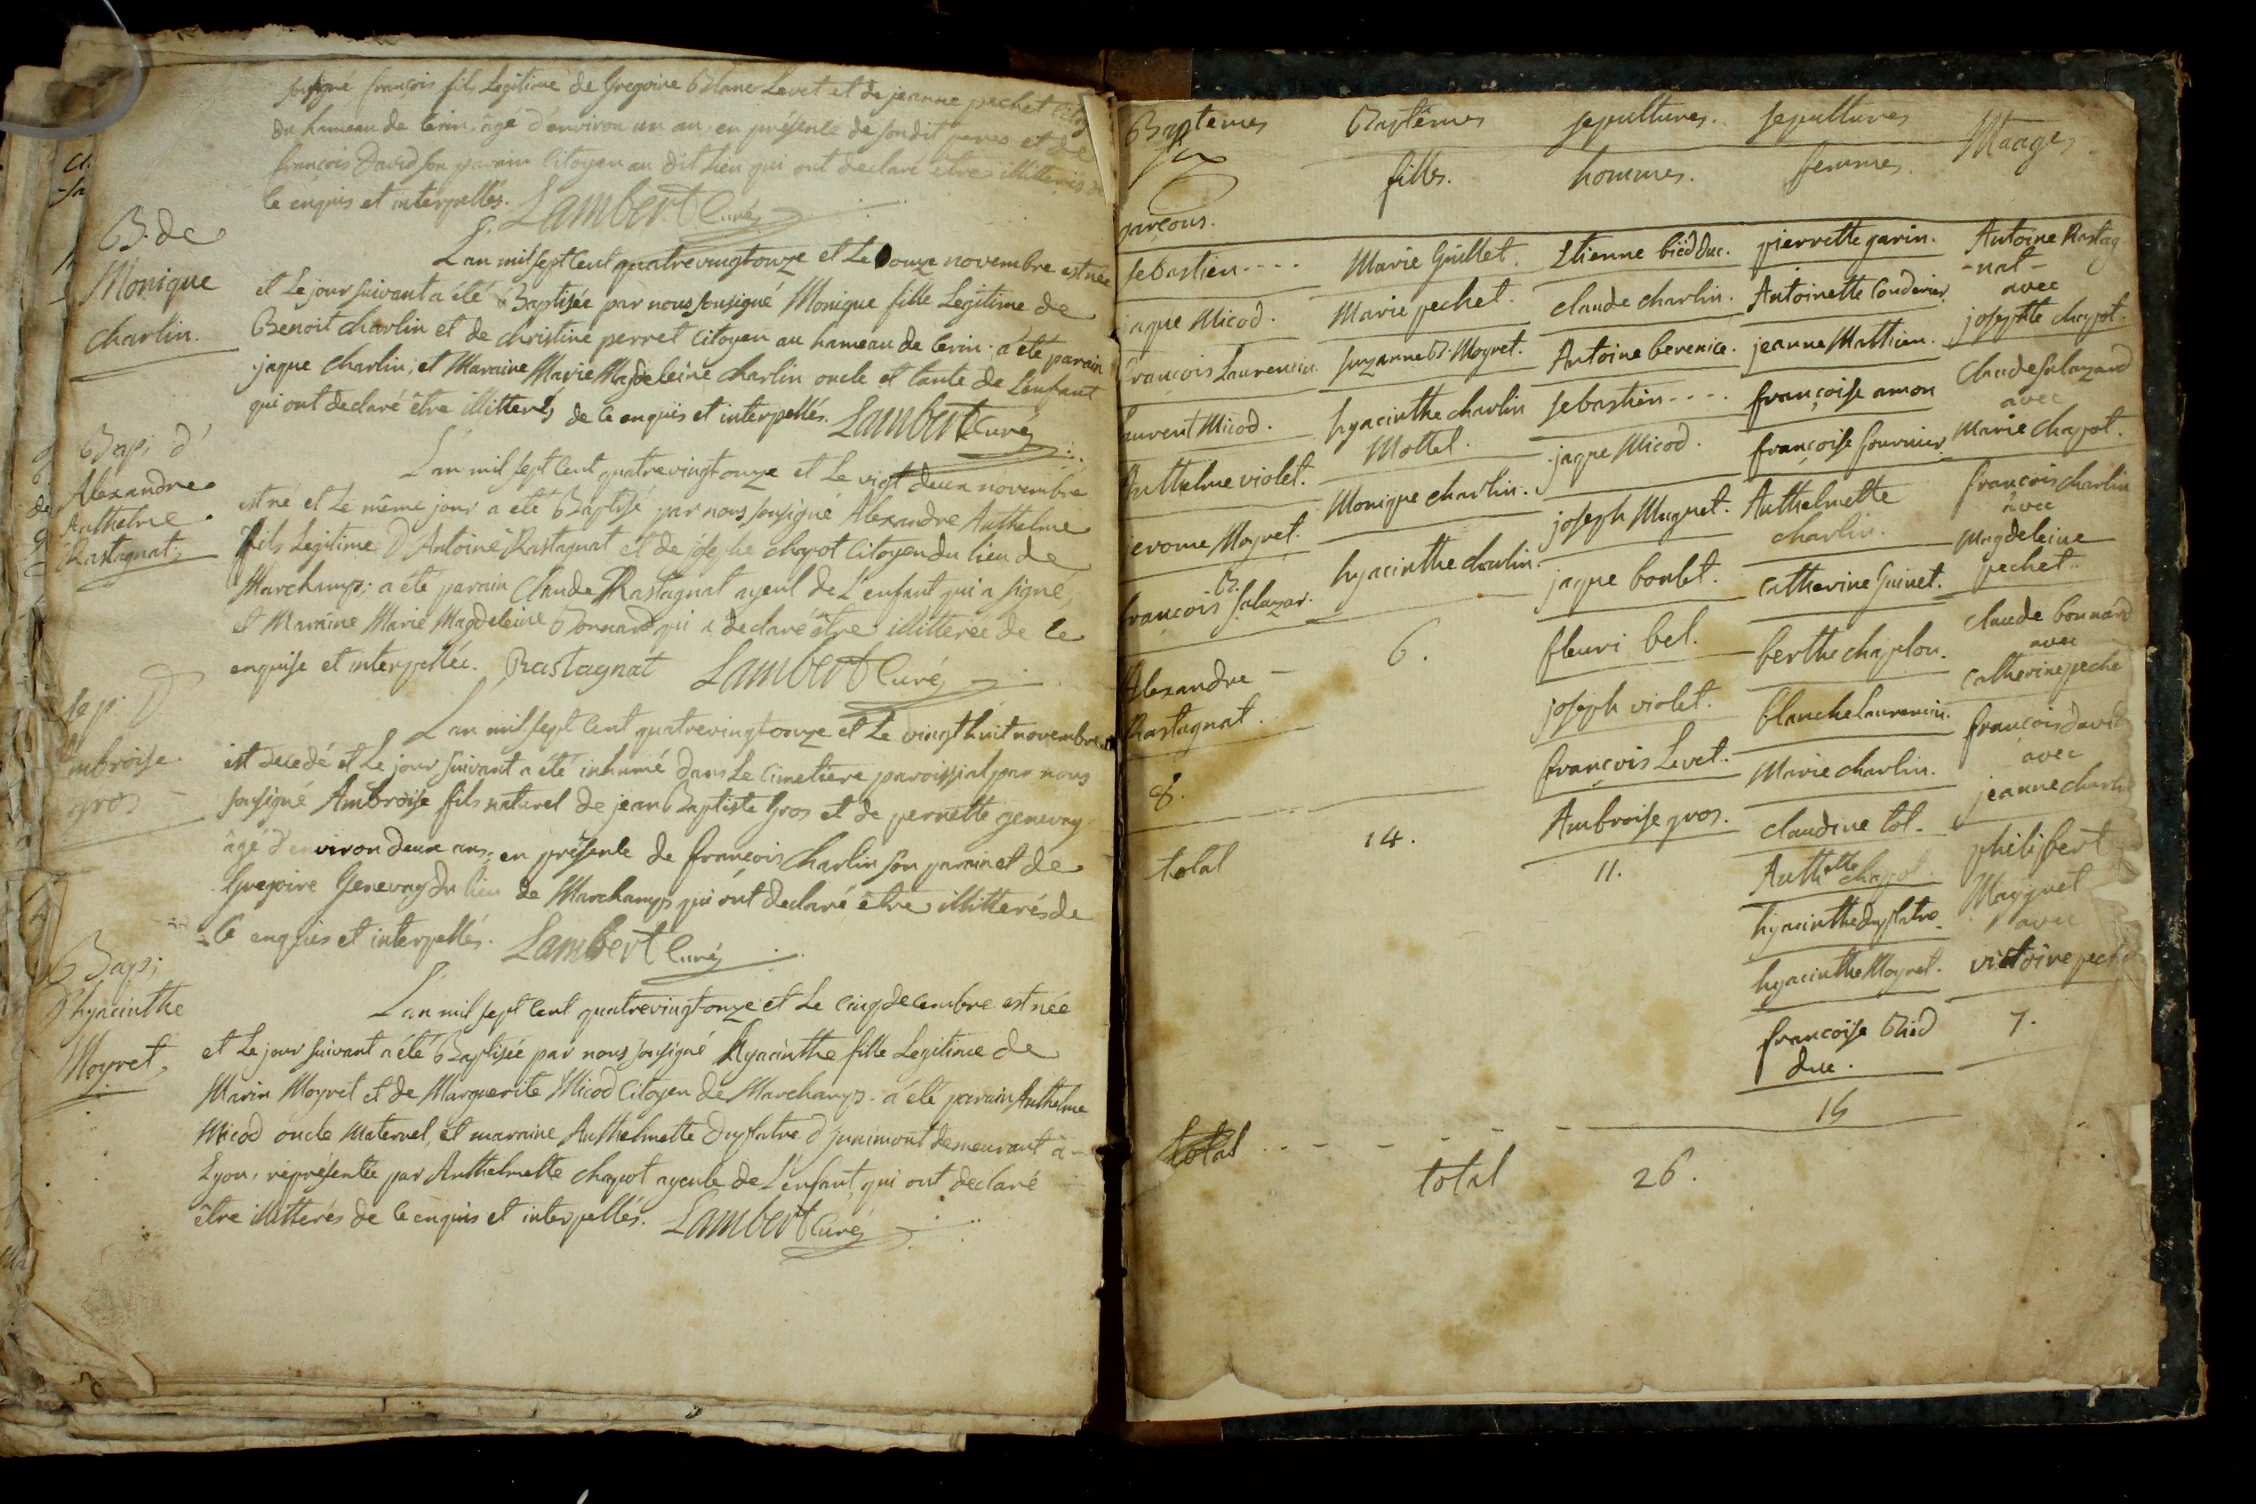 sousigné françois fils Legitime de Gregoire Blanc Levet et de jeanne pechet
Du hameau de Cerin, âgé d'environ un an, en présence de son dit pere et de
françois David son parain Citoyen au dit Lieu qui ont declaré être illitterés de
ce enquis et interpellés. Lambert Curé
B. de
Monique
charlin.
L'an mil sept cent quatrevingt onze et Le onze novembre est née
et Le jour suivant a été Baptisée par nous sousigné Monique fille Legitime de
Benoit charlin et de christine perret Citoyen au hameau de Cerin. a été parain
jaque charlin, et Maraine Marie Magdeleine charlin oncle et tante de L'enfant
qui ont declaré être illitterés de ce enquis et interpellés. Lambert Curé
Bap; d'
Alexandre
Anthelme
Rastagnat;
L'an mil sept cent quatrevingt onze et Le vigt deux novembre
est né et Le même jour a été Baptisé par nous sousigné Alexandre Anthelme
fils Legitime D'Antoine Rastagnat et de josephe chapot Citoyen du lieu de
Marchamp; a été parain Claude Rastagnat ayeul de L'enfant qui a signé,
et Maraine Marie Magdeleine Bonnard qui a declaré être illitterée de ce
enquise et interpellée. Rastagnat Lambert Curé
sep. D
ambroise
gros
L'an mil sept cent quatrevingt onze et Le vingt huit novembre
est decedé et Le jour suivant a été inhumé dans Le Cimetiere paroissial par nous
sousigné Ambroise fils naturel de jean Baptiste Gros et de pernette genevay
âgé d'environ deux ans; en présence de françois charlin son parain et de
Gregoire Genevay du lieu de Marchamp qui ont declaré être illitterés de
ce enquis et interpellés. Lambert Curé
Bap;
D'hyacinthe
Moyret,
L'an mil sept cent quatrevingt onze et Le cinq decembre est née
et Le jour suivant a été Baptisée par nous sousigné Hyacinthe fille Legitime de
Marin Moyret et de Marguerite Micod Citoyen de Marchamp. a été parain Anthelme
Micod oncle maternel, et maraine Anthelmette Duplatre D'junimont demeurant à
Lyon, réprésentée par Anthelmette chapot ayeule de L'enfant, qui ont declaré
être illitterés de ce enquis et interpellés. Lambert Curé
Baptemes
garçons.
sebastien....
jaque Micod.
françois Laurencin.
Laurent Micod.
Anthelme violet.
jerome Moyret.
françois B. salazar.
Alexandre
Rastagnat.
8.
total
Baptêmes
filles.
Marie Guillet.
Marie pechet.
suzanne B. Moyret.
hyacinthe charlin
Mottel.
Monique charlin.
hyacinthe charlin.
6.
14.
sepultures.
hommes.
Etienne bièd duc.
claude charlin.
Antoine berenice.
sebastien....
jaque Micod.
joseph Muguet.
jaque boulet.
fleuri bel.
joseph violet.
françois Levet.
Ambroise gros.
11.
sepultures
femmes.
pierrette garin.
Antoinette Couderier.
jeanne Matthieu.
françoise amon
françoise fournier
Anthelmette
charlin.
catherine Guinet.
berthe chaplon.
blanche laurencin.
Marie charlin.
claudine tol.
Anth.ette chapot.
hyacinthe duplatre
hyacinthe Moyret.
françoise Bied
duc.
15
Maages
Antoine Rastag
-nat-
avec
josephte chapot.
Claude salazard
avec
Marie chapot.
françois charlin
avec
Magdeleine
pechet.
claude bonnard
avec
catherine peche
françois david
avec
jeanne charli
philibert
Mayguet
avec
victoire pech
7.
total
total 26.